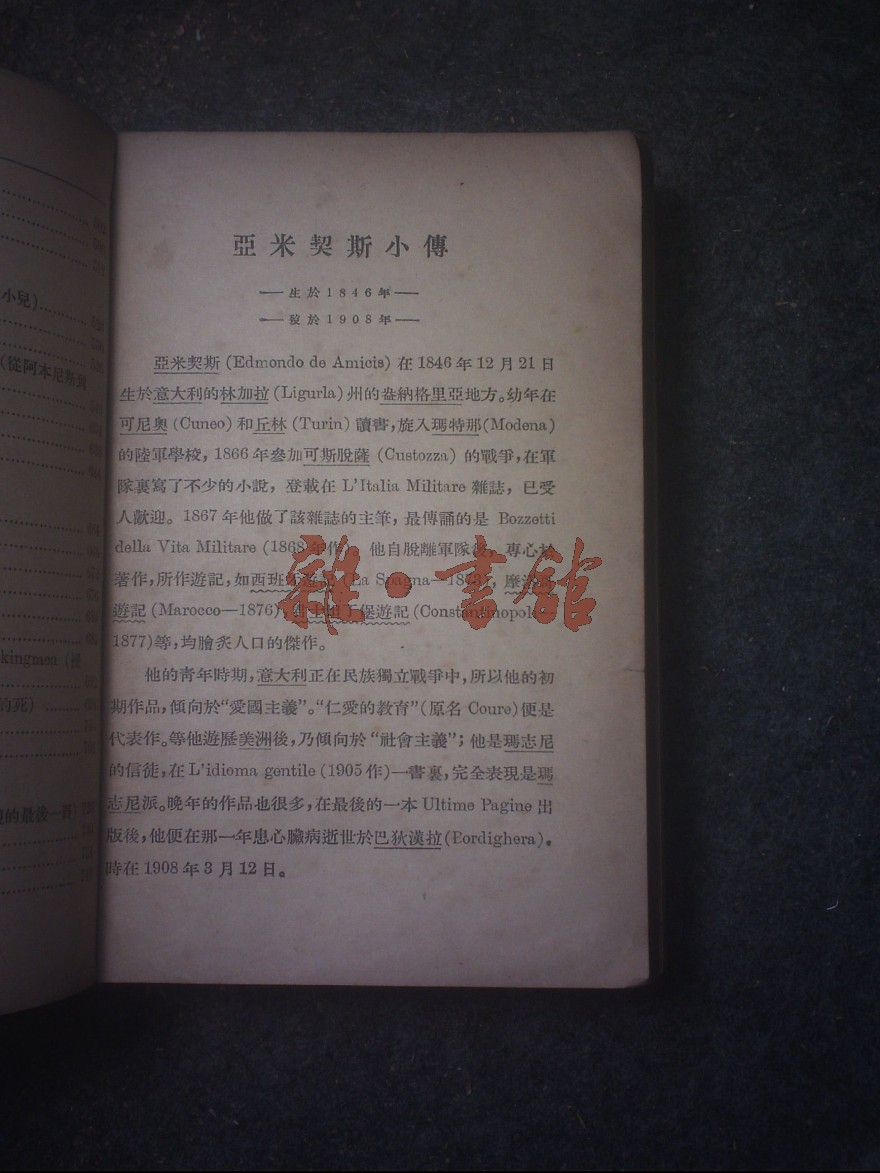 小兒)
(從阿本尼斯到
kingmea (從
的死)
的最後一頁)
亞米契斯小傳
生於1846年
歿於1908年
亞米契斯 (Edmondo de Amicis) 在 1846 年 12 月 21 日
生於意大利的林加拉 (Ligurla) 州的盎納格里亞地方。幼年在
可尼奧 (Cuneo) 和丘林 (Turin) 讀書，旋入瑪特那 (Modena)
的陸軍學校，1866 年參加可斯脫薩 (Custozza) 的戰爭，在軍
隊裏寫了不少的小說，登載在 L'Italia Militare 雜誌，已受
人歡迎。1867 年他做了該雜誌的主筆，最傳誦的是 Bozzetti
della Vita Militare (1868年作)。他自脫離軍隊後，專心於
著作，所作遊記，如西班牙遊記 (La Spagna—1873)，摩洛哥
遊記 (Marocco—1876)，君士坦丁堡遊記 (Constantinopole
1877) 等，均膾炙人口的傑作。
他的青年時期，意大利正在民族獨立戰爭中，所以他的初
期作品，傾向於“愛國主義”。“仁愛的教育”（原名 Coure) 便是
代表作。等他遊歷美洲後，乃傾向於“社會主義”；他是瑪志尼
的信徒，在 L'idioma gentile (1905 作) 一書裏，完全表現是瑪
志尼派。晚年的作品也很多，在最後的一本 Ultime Pagine 出
版後，他便在那一年患心臟病逝世於巴狄漢拉 (Bordighera)。
時在 1908 年 3 月 12 日。
雜·書館